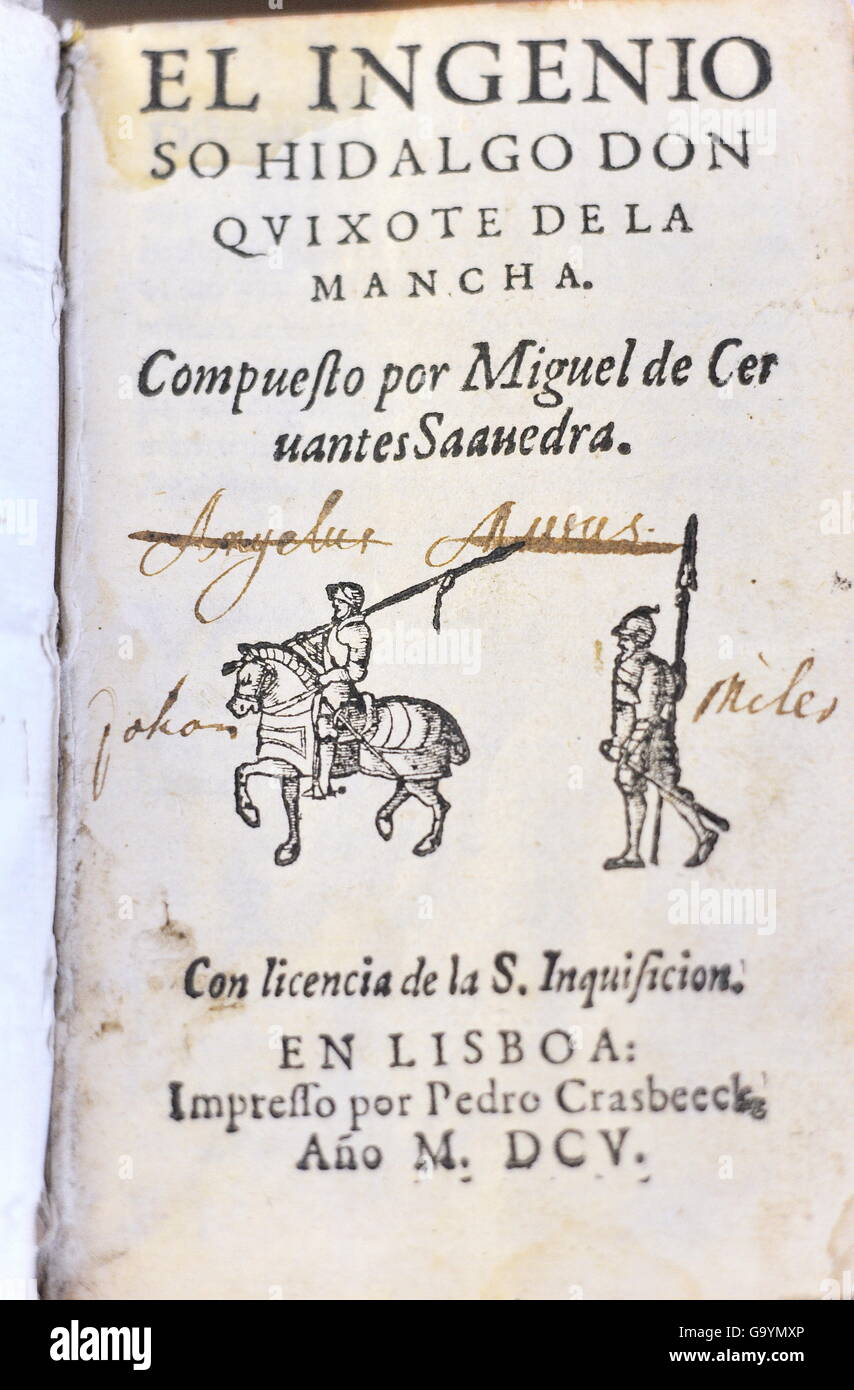 EL INGENIO
SO HIDALGO DON
QVIXOTE DE LA
MANCHA.
Compueſto por Miguel de Cer
uantes Saauedra.
Angelus Musus.
Johan
Miles
Con licencia de la S. Inquiſicion.
EN LISBOA:
Impreſſo por Pedro Crasbeeck,
Año M. DCV.
alamy
Image ID: G9YMXP
www.alamy.com